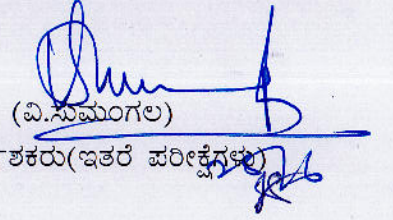 (ವಿ.ಸುಮಂಗಲ)
ರ್ಶಕರು(ಇತರೆ ಪರೀಕ್ಷೆಗಳು)